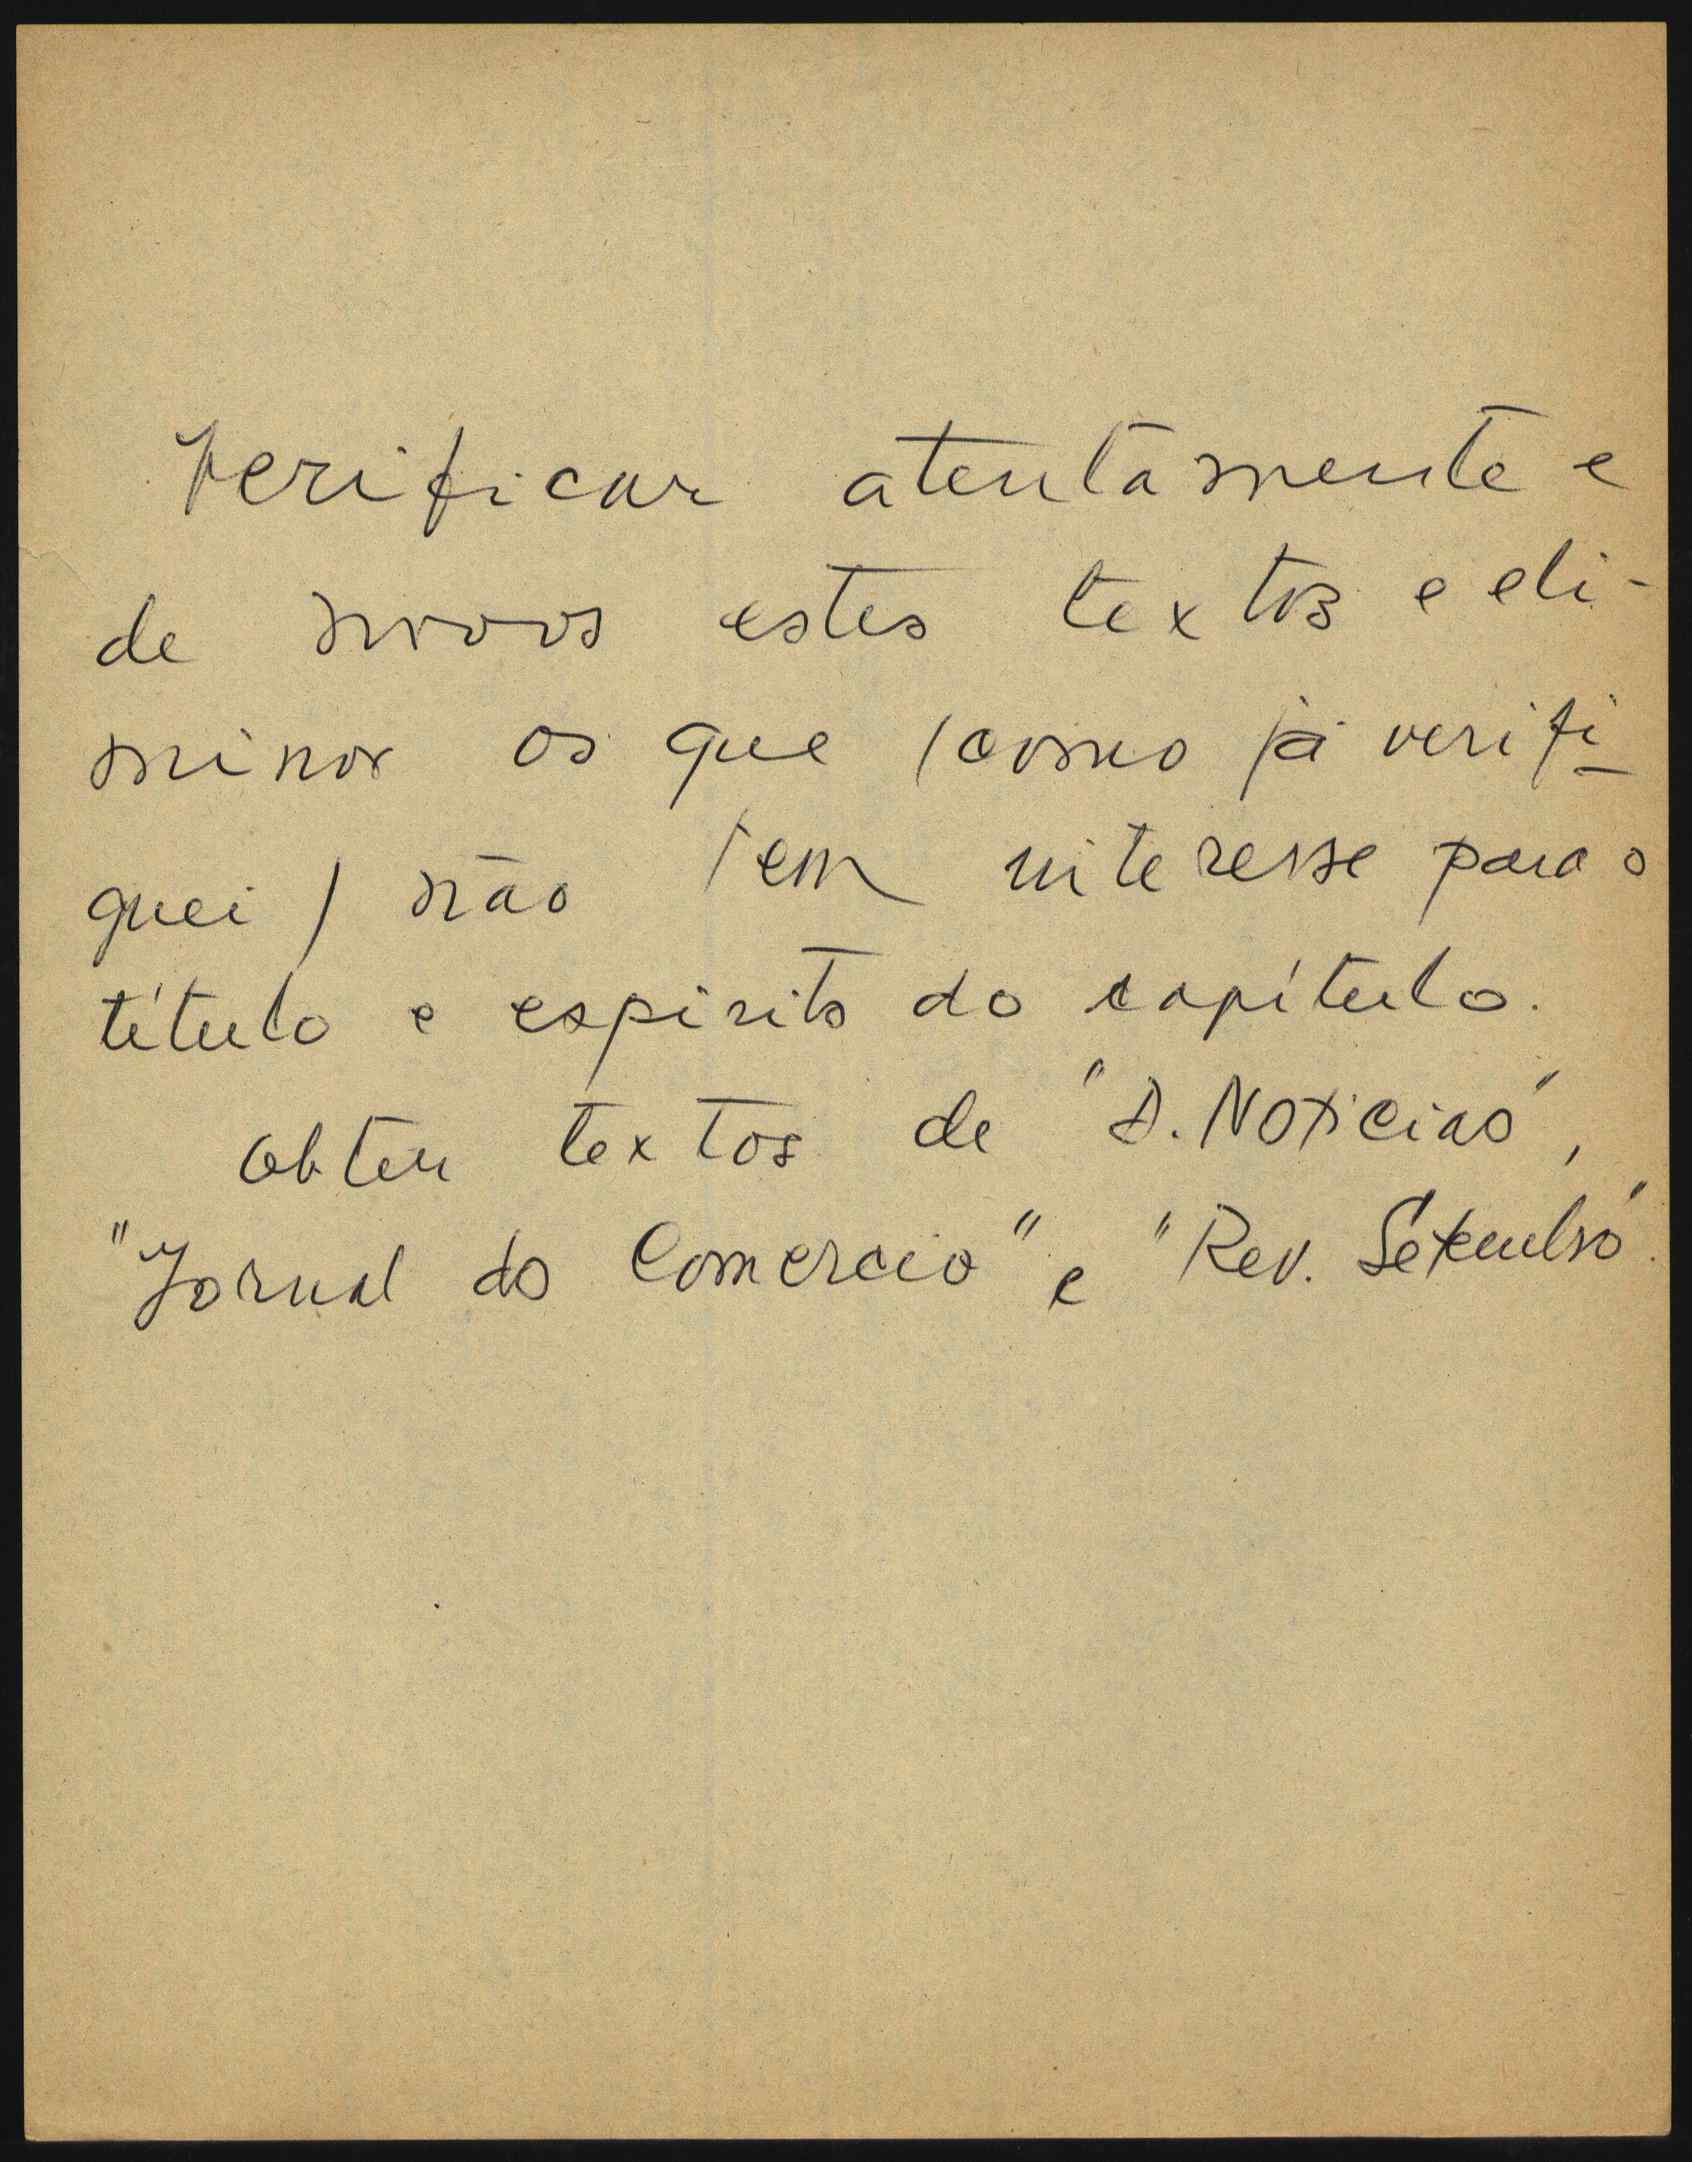 Verificar atentamente e
de novo estes textos e eli-
minar os que (como já verifi-
quei) não tem interesse para o
título e espírito do capítulo.
Obter textos de "D. Noticias",
"Jornal do Comercio" e "Rev. Setembro"